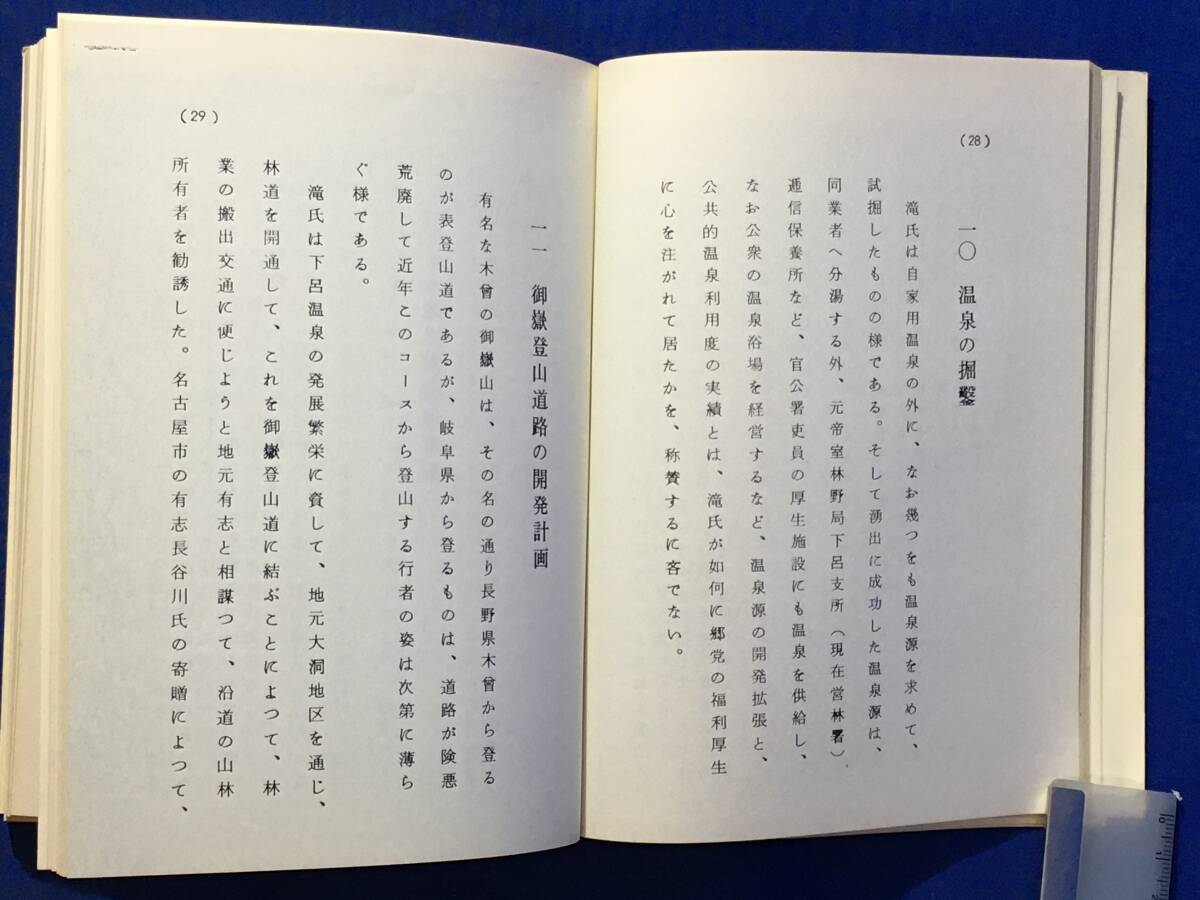 (28)
一〇 温泉の掘鑿
滝氏は自家用温泉の外に、なお幾つをも温泉源を求めて、
試掘したものの様である。そして湧出に成功した温泉源は、
同業者へ分湯する外、元帝室林野局下呂支所(現在営林署)、
逓信保養所など、官公署吏員の厚生施設にも温泉を供給し、
なお公衆の温泉浴場を経営するなど、温泉源の開発拡張と、
公共的温泉利用度の実績とは、滝氏が如何に郷党の福利厚生
に心を注がれて居たかを、称賛するに客でない。
(29)
一一 御嶽登山道路の開発計画
有名な木曾の御嶽山は、その名の通り長野県木曾から登る
のが表登山道であるが、岐阜県から登るものは、道路が険悪
荒廃して近年このコースから登山する行者の姿は次第に薄ら
ぐ様である。
滝氏は下呂温泉の発展繁栄に資して、地元大洞地区を通じ、
林道を開通して、これを御嶽登山道に結ぶことによつて、林
業の搬出交通に便じようと地元有志と相謀つて、沿道の山林
所有者を勧誘した。名古屋市の有志長谷川氏の寄贈によつて、